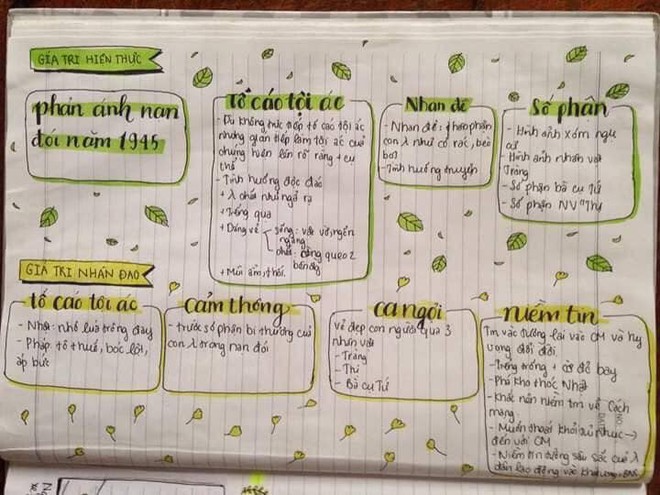 GIÁ TRỊ HIỆN THỰC
phản ánh nạn
đói năm 1945
Tố cáo tội ác
- Dù không trực tiếp tố cáo tội ác
nhưng gián tiếp làm tội ác của
chúng hiện lên rõ ràng + cụ
thể
- Tình huống độc đáo
+ λ chết như ngả rạ
+ Tiếng quạ
+ Dáng vẻ
sống: vật vờ, ngổn
ngang
chết: còng queo 2
bên đường
+ Mùi ẩm, thối.
Nhan đề
- Nhan đề: thân phận
con λ như cỏ rác, bèo
bọt
- Tình huống truyện
Số phận
- Hình ảnh xóm ngụ
cư
- Hình ảnh nhân vật
Tràng
- Số phận bà cụ Tứ
- Số phận NV "Thị
GIÁ TRỊ NHÂN ĐẠO
tố cáo tội ác
- Nhật: nhổ lúa trồng đay
- Pháp: tô thuế, bóc lột,
áp bức
Cảm thông
- trước số phận bi thương của
con λ trong nạn đói
ca ngợi
vẻ đẹp con người qua 3
nhân vật
- Tràng
- Thị
- Bà cụ Tứ
niềm tin
Tin vào tương lai vào CM và hy
vọng đổi đời.
- Tiếng trống + cờ đỏ bay
- Phá kho thóc Nhật
- Khắc hẳn niềm tin về Cách
mạng
- Muốn thoát khỏi
đến với CM
- Niềm tin tưởng sâu sắc của λ
dân lao động vào